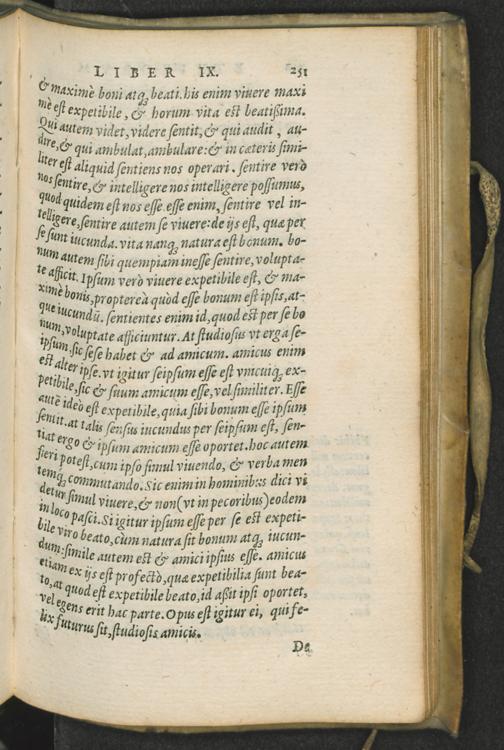 LIBER IX. 251
& maximè boni atq; beati. his enim viuere maxi
mè est expetibile, & horum vita est beatißima.
Qui autem videt, videre sentit, & qui audit, au-
dire, & qui ambulat, ambulare: & in cæteris simi-
liter est aliquid sentiens nos operari. sentire verò
nos sentire, & intelligere nos intelligere possumus,
quod quidem est nos esse. esse enim, sentire vel in-
telligere, sentire autem se viuere: de ijs est, quæ per
se sunt iucunda. vita nanq; natura est bonum. bo-
num autem sibi quempiam inesse sentire, volupta-
te afficit. Ipsum verò viuere expetibile est, & ma-
ximè bonis, proptereà quòd esse bonum est ipsis, at-
que iucundũ. sentientes enim id, quod est per se bo
num, voluptate afficiuntur. At studiosus vt erga se-
ipsum, sic sese habet & ad amicum. amicus enim
est alter ipse. vt igitur seipsum esse est vnicuiq; ex-
petibile, sic & suum amicum esse, vel similiter. Esse
autē ideò est expetibile, quia sibi bonum esse ipsum
sentit. at talis sensus iucundus per seipsum est, sen-
tiat ergo & ipsum amicum esse oportet. hoc autem
fieri potest, cum ipso simul viuendo, & verba men
temq; commutando. Sic enim in hominibus dici vi
detur simul viuere, & non (vt in pecoribus) eodem
in loco pasci. Si igitur ipsum esse per se est expeti-
bile viro beato, cùm natura sit bonum atq; iucun-
dum: simile autem est & amici ipsius esse. amicus
etiam ex ijs est profectò, quæ expetibilia sunt bea-
to, at quod est expetibile beato, id aßit ipsi oportet,
vel egens erit hac parte. Opus est igitur ei, qui fe-
lix futurus sit, studiosis amicis.
De